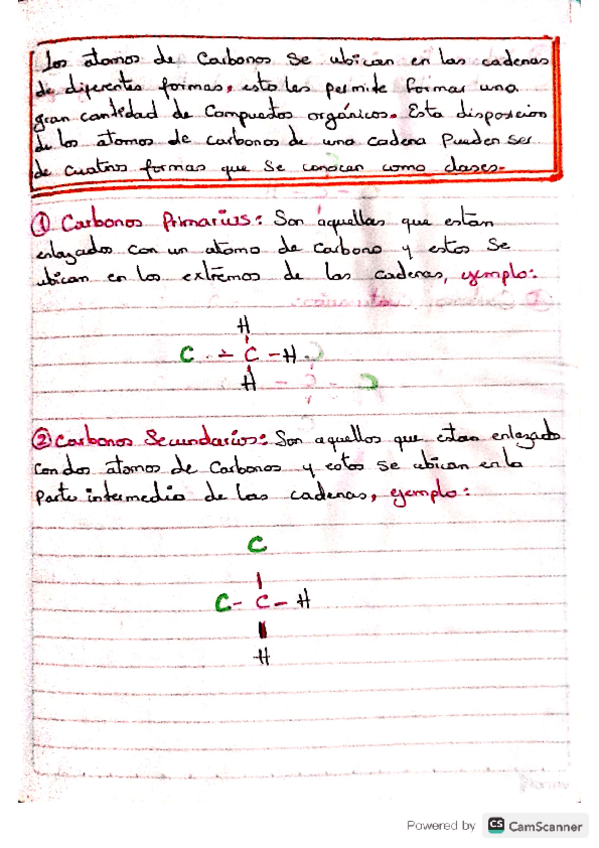 Los átomos de Carbonos se ubican en las cadenas
de diferentes formas, esto les permite formar una
gran cantidad de Compuestos orgánicos. Esta disposicion
de los átomos de carbonos de una cadena pueden ser
de cuatros formas que se conocan como clases.
① Carbonos Primarius: Son aquellas que estan
enlazados con un atomo de carbono y estos se
ubican en los extremos de las cadenas, ejemplo:
H
C - C - H
H
② Carbonos Secundarios: Son aquellos que estan enlazado
con dos átomos de Carbonos y estos se ubican en la
Parte intermedia de las cadenas, ejemplo:
C
C - C - H
H
Powered by CS CamScanner